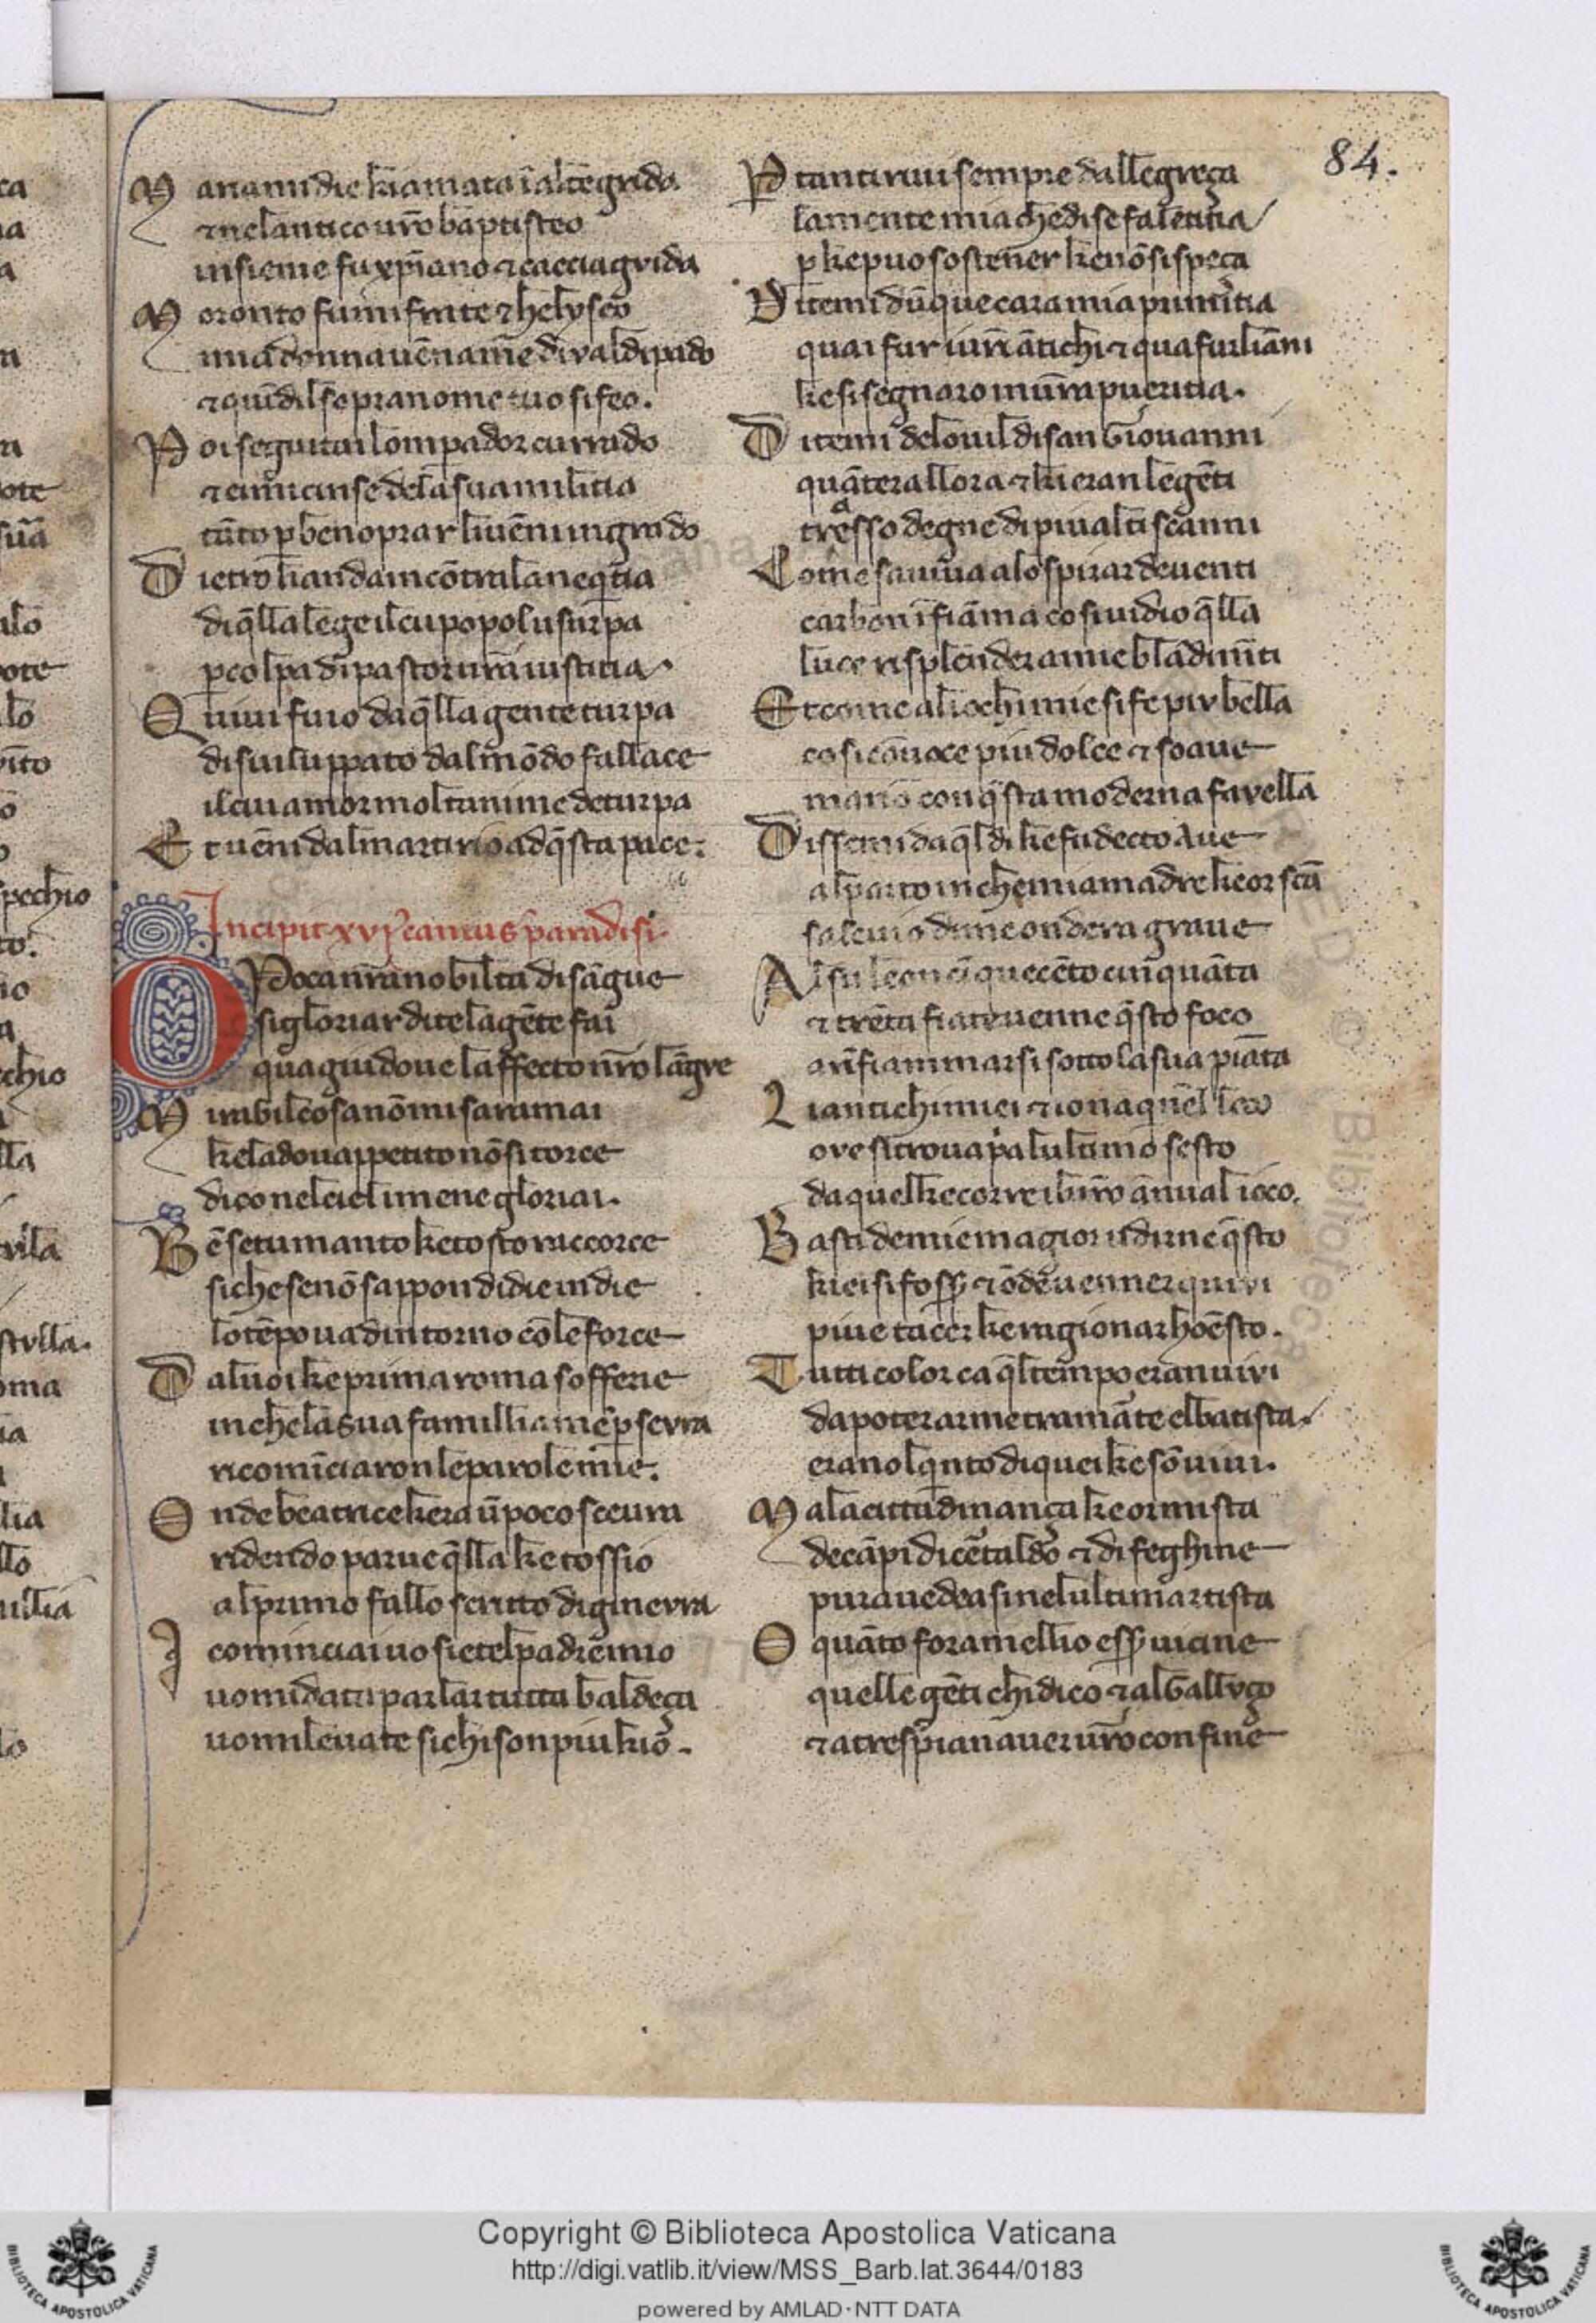 84.
M arianmi die kiamata i alte grida
⁊ nel antico ur̄o baptisteo
insieme fu xp̄iano ⁊ cacciagvida
M oronto fu mi frate ⁊ helyseo
mia donna uēn a me di val di pado
⁊ quīdi l sopranome tuo si feo.
P oi seguitai lo mpador currado
⁊ ei mi cinse dela sua militia
tāto p ben oprar li uēni in grado
D ietro li andai incōtra la neq̄tia
di q̄lla lege il cu popol usurpa
p colpa di pastor ur̄a iustitia
Q uiui fu io da q̄lla gente turpa
disuiluppato dal mōdo fallace
il cui amor molt anime deturpa
E t uēni dal martirio ad q̄sta pace:
Incipit xvj cantus paradisi
O Poca nr̄a nobilta di sāgue
si gloriar di te la gēte fai
qua giu doue laffecto nr̄o lāgve
M irabil cosa nō mi sara mai
ke la doua ppetito nō si torce
dico nel ciel i me ne gloriai.
B ē se tu manto ke tosto raccorce
si che se nō sappon di die in die
lo tēpo ua dintorno cō le force
D al uoi ke prima roma sofferie
in che la sua familliam ē p sevra
ricomīciaron le parole mie:
O nde beatrice kera ū poco sceura
ridendo parue q̄lla ke tossio
al primo fallo scritto di ginevra
I cominciai uo siete l padre mio
uo mi data parlar tutta baldeça
uo mi leuate si chi son piu kio.
P tanti riui sempre dallegreça
la mente mia che di se fa letitia
p ke puo sostener ke nō si speça
D item i dūque cara mia primitia
quai fur i ur̄i ātichi ⁊ qua fur li āni
ke si segnaro in ur̄a pueritia.
D itemi de louil di san Giouanni
quāt era llora ⁊ ki eran le gēti
tra esso degne di piu alti scanni
C ome sauiua a lo spirar de uenti
carbon ī fiāma cosi uidio q̄lla
luce risplender a mie blādim̄ti
E t come a li ochi mie si fe piv bella
cosi cō uoce piu dolce ⁊ soaue
ma nō con q̄sta moderna favella
D issemi da q̄l di ke fu decto Aue
al parto in che mia madre keor sc̄a
saleuio di me ondera graue
A l su leon cīquecēto cinquāta
⁊ trēta fiate uenne q̄sto foco
a rīfiammarsi sotto la sua piāta
L i antichi miei ⁊ io naqui nel loco
ove si trova p̄a lultimo sesto
da quel ke corre il ur̄o ānual ioco.
B asti de mie magiori udirne q̄sto
ki ei si foss̄ ⁊ ōde uenner quivi
piu e tacer ke ragionar hōesto.
T utti color ca q̄l tempo eran uivi
da poter arme tra māte el batista
erano l q̄nto di quei ke sō uiui.
M a la cittadinança ke or mista
de cāpi di cētaldo ⁊ di feghine
pura uedeasi nel ultim artista
O quāto fora mellio ess̄ uicine
quelle gēti chi dico ⁊ al Gallvço
⁊ a trespian auer ur̄o confine
Copyright © Biblioteca Apostolica Vaticana
http://digi.vatlib.it/view/MSS_Barb.lat.3644/0183
powered by AMLAD·NTT DATA